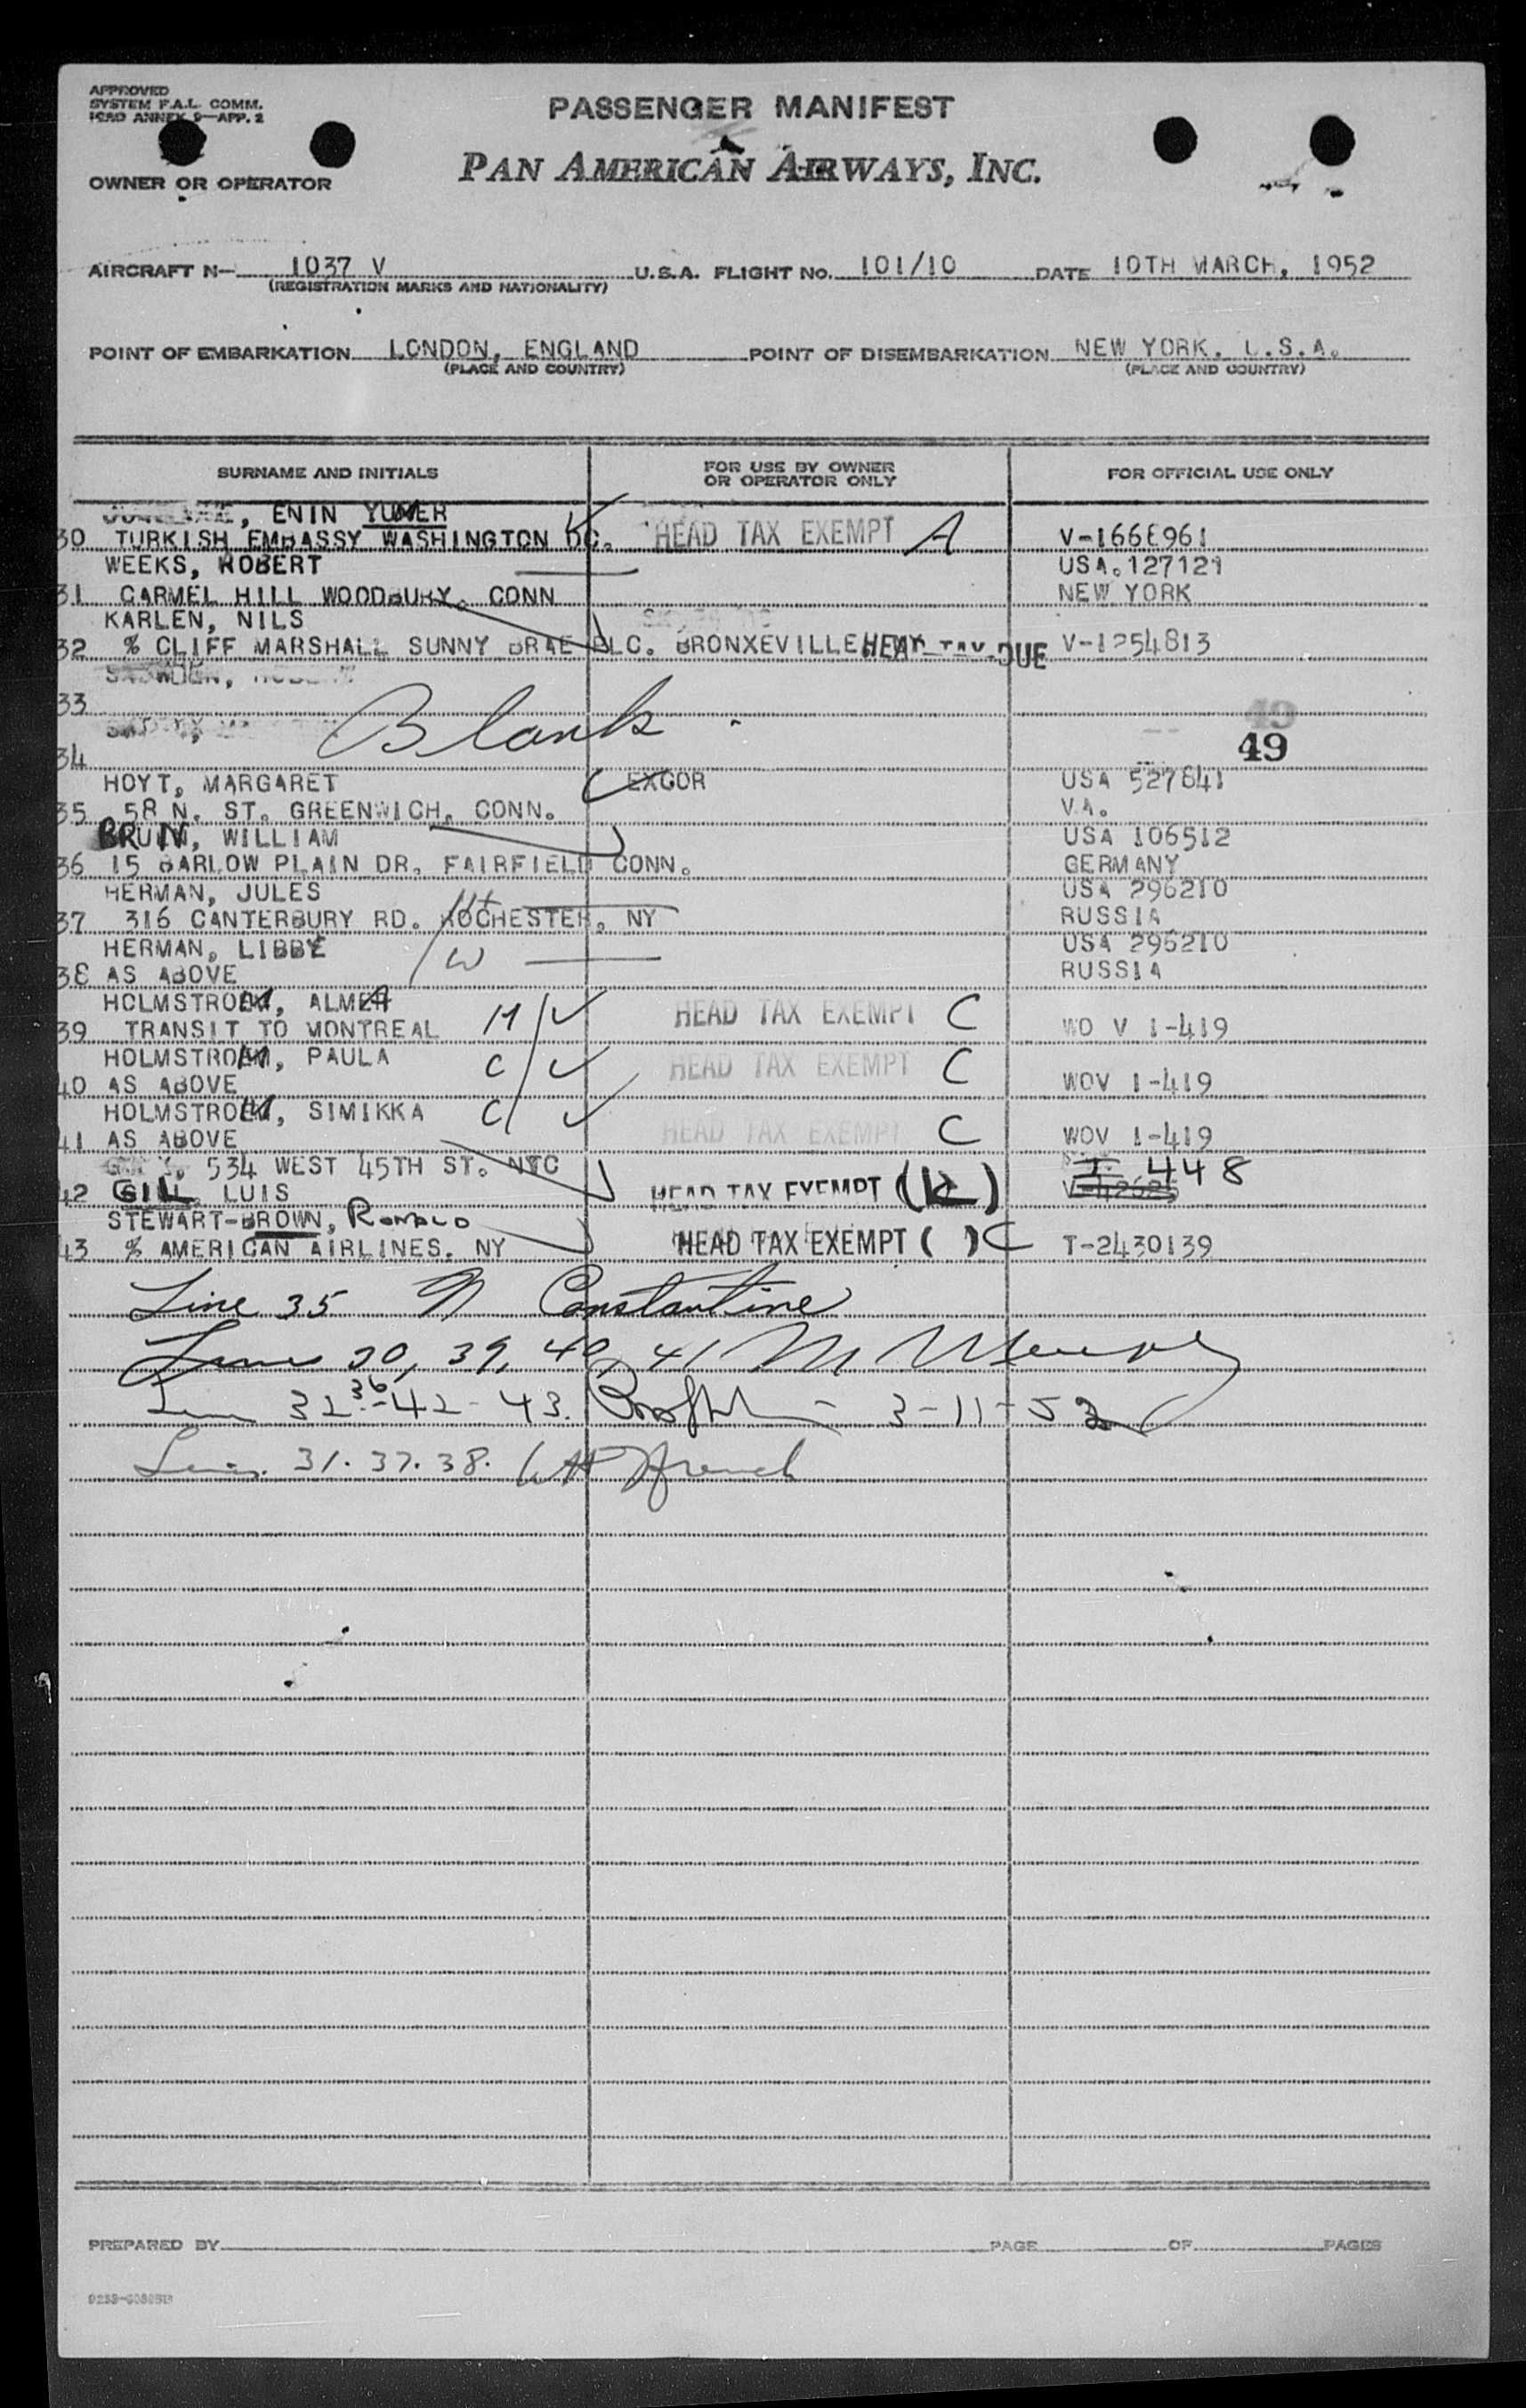 APPROVED
SYSTEM F.A.L. COMM.
ICAO ANNEX 9—APP. 2
PASSENGER MANIFEST
PAN AMERICAN AIRWAYS, INC.
OWNER OR OPERATOR
AIRCRAFT N— 1037 V U.S.A. FLIGHT NO. 101/10 DATE 10TH MARCH, 1952
(REGISTRATION MARKS AND NATIONALITY)
POINT OF EMBARKATION LONDON, ENGLAND POINT OF DISEMBARKATION NEW YORK, U.S.A.
(PLACE AND COUNTRY) (PLACE AND COUNTRY)
SURNAME AND INITIALS FOR USE BY OWNER OR OPERATOR ONLY FOR OFFICIAL USE ONLY
, ENIN YUMER
30 TURKISH EMBASSY WASHINGTON DC. HEAD TAX EXEMPT A V-1668961
WEEKS, ROBERT USA. 127121
31 CARMEL HILL WOODBURY. CONN NEW YORK
KARLEN, NILS
32 % CLIFF MARSHALL SUNNY BRAE PLC. BRONXEVILLE HEAD TAX DUE V-1254813
33
Blank
34 49
HOYT, MARGARET EXCOR USA 527841
35 58 N. ST. GREENWICH, CONN. VA.
BRUIN, WILLIAM USA 106512
36 15 BARLOW PLAIN DR. FAIRFIELD CONN. GERMANY
HERMAN, JULES USA 296210
37 316 CANTERBURY RD. ROCHESTER, NY RUSSIA
HERMAN, LIBBY W USA 296210
38 AS ABOVE RUSSIA
HOLMSTROM, ALMA M
39 TRANSIT TO MONTREAL HEAD TAX EXEMPT C WO V 1-419
HOLMSTROM, PAULA C HEAD TAX EXEMPT C
40 AS ABOVE WOV 1-419
HOLMSTROM, SIMIKKA C HEAD TAX EXEMPT C
41 AS ABOVE WOV 1-419
534 WEST 45TH ST. NYC I 448
42 GILL, LUIS HEAD TAX EXEMPT (K)
STEWART-BROWN, RONALD
43 % AMERICAN AIRLINES. NY HEAD TAX EXEMPT ( ) C T-2430139
Line 35 N Constantine
Lines 30, 39, 40, 41 M
32 36 - 42 - 43. 3-11-52
Lines. 31. 37. 38. WH French
PREPARED BY PAGE OF PAGES